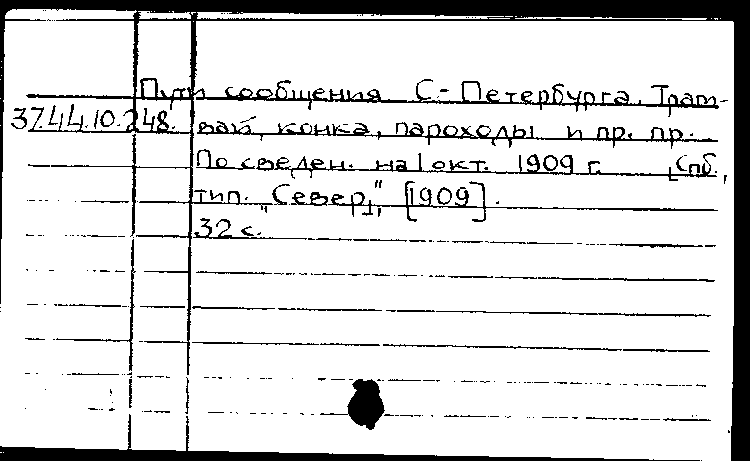 Пути сообщения С-Петербурга. Трам-
37.44.10.248. вай, конка, пароходы и пр. пр.
По сведен. на 1 окт. 1909 г. [Спб.,
тип. "Север],", [1909].
32 с.